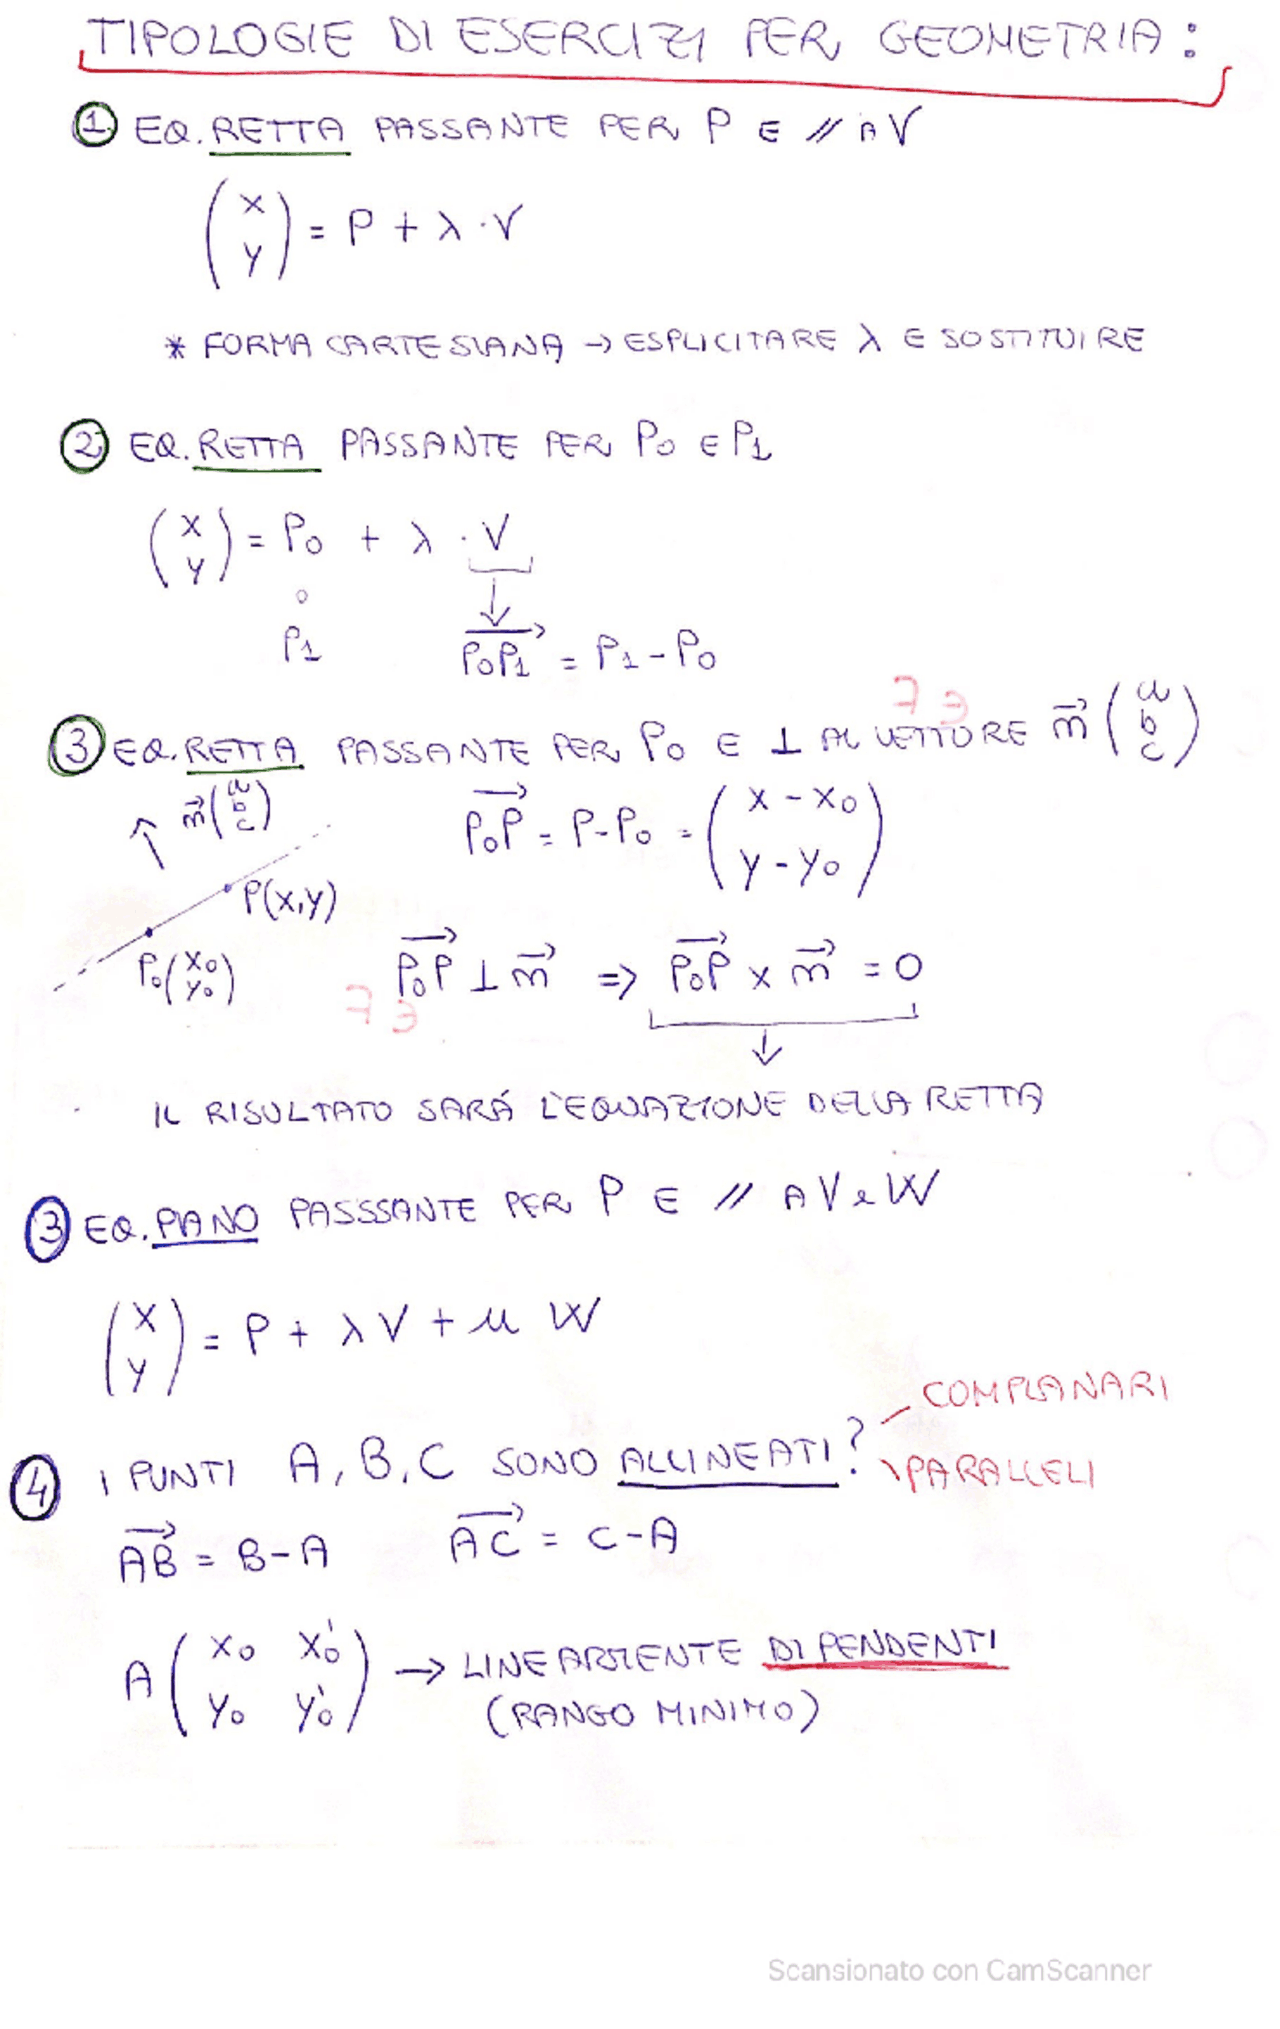 TIPOLOGIE DI ESERCIZI PER GEOMETRIA:
① EQ. RETTA PASSANTE PER P E // A V
(x y) = P + λ · V
* FORMA CARTESIANA → ESPLICITARE λ E SOSTITUIRE
② EQ. RETTA PASSANTE PER P₀ E P₁
(x y) = P₀ + λ · V
o
P₁
P₀P₁ = P₁ - P₀
③ EQ. RETTA PASSANTE PER P₀ E ⊥ AL VETTORE m (a b c)
m (a b c)
P₀P = P - P₀ = (x - x₀ y - y₀)
P(x,y)
P₀ (x₀ y₀)
P₀P ⊥ m => P₀P × m = 0
IL RISULTATO SARÁ L'EQUAZIONE DELLA RETTA
③ EQ. PIANO PASSSANTE PER P E // A V e W
(x y) = P + λ V + μ W
COMPLANARI
④ I PUNTI A, B, C SONO ALLINEATI?
PARALLELI
AB = B - A AC = C - A
A (x₀ x₀' y₀ y₀') → LINEARMENTE DIPENDENTI
(RANGO MINIMO)
Scansionato con CamScanner